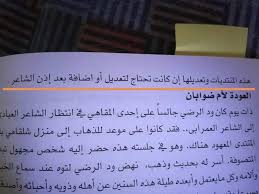 هذه المنتديات وتعديلها إن كانت تحتاج لتعديل أو اضافة بعد إذن الشاعر
العودة لأم ضوابان
ذات يوم كان ود الرضي جالساً على إحدى المقاهي في انتظار الشاعر العبادي
أو الشاعر العمرابي. فقد كانوا على موعد للذهاب إلى منزل شلقامي
المنتدى المعهود هناك. وهو في جلسته هذه حضر إليه شخص مجهول
المتصوفة. أسر له بحديث وذهب. نهض ود الرضي لتوه عند سماع
وكل مايعتمل وأبعده طيلة هذه السنين عن أهله وذويه وأحبائه